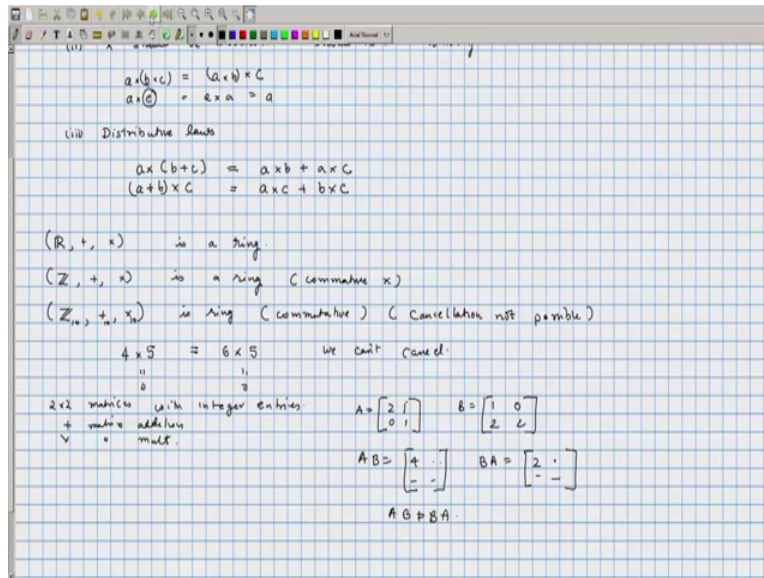 a×(b×c) = (a×b)×c
a×e = e×a = a
(iii) Distributive laws
a×(b+c) = a×b + a×c
(a+b)×c = a×c + b×c
(ℝ, +, ×) is a ring.
(ℤ, +, ×) is a ring (commative ×)
(ℤ₁₀, +₁₀, ×₁₀) is ring (commutative) (cancellation not possible)
4×5 = 6×5 we can't cancel.
" "
0 0
2×2 matrices with integer entries.
+ matrix addition
× " mult.
A = [2 1
0 1] B = [1 0
2 2]
AB = [4 ..
- -] BA = [2 .
- -]
AB ≠ BA.